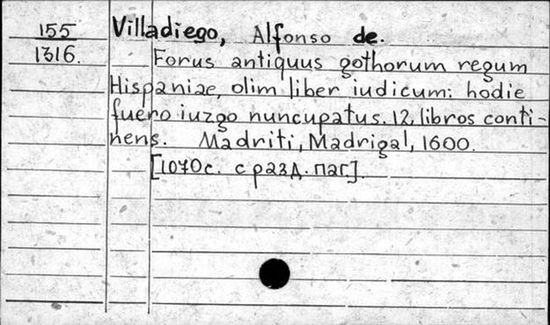 155
1316.
Villadiego, Alfonso de.
Forus antiquus gothorum regum
Hispaniae, olim liber iudicum: hodie
fuero iuzgo nuncupatus. 12, libros conti-
nens. Madriti, Madrigal, 1600.
[1070с. с разд. паг].